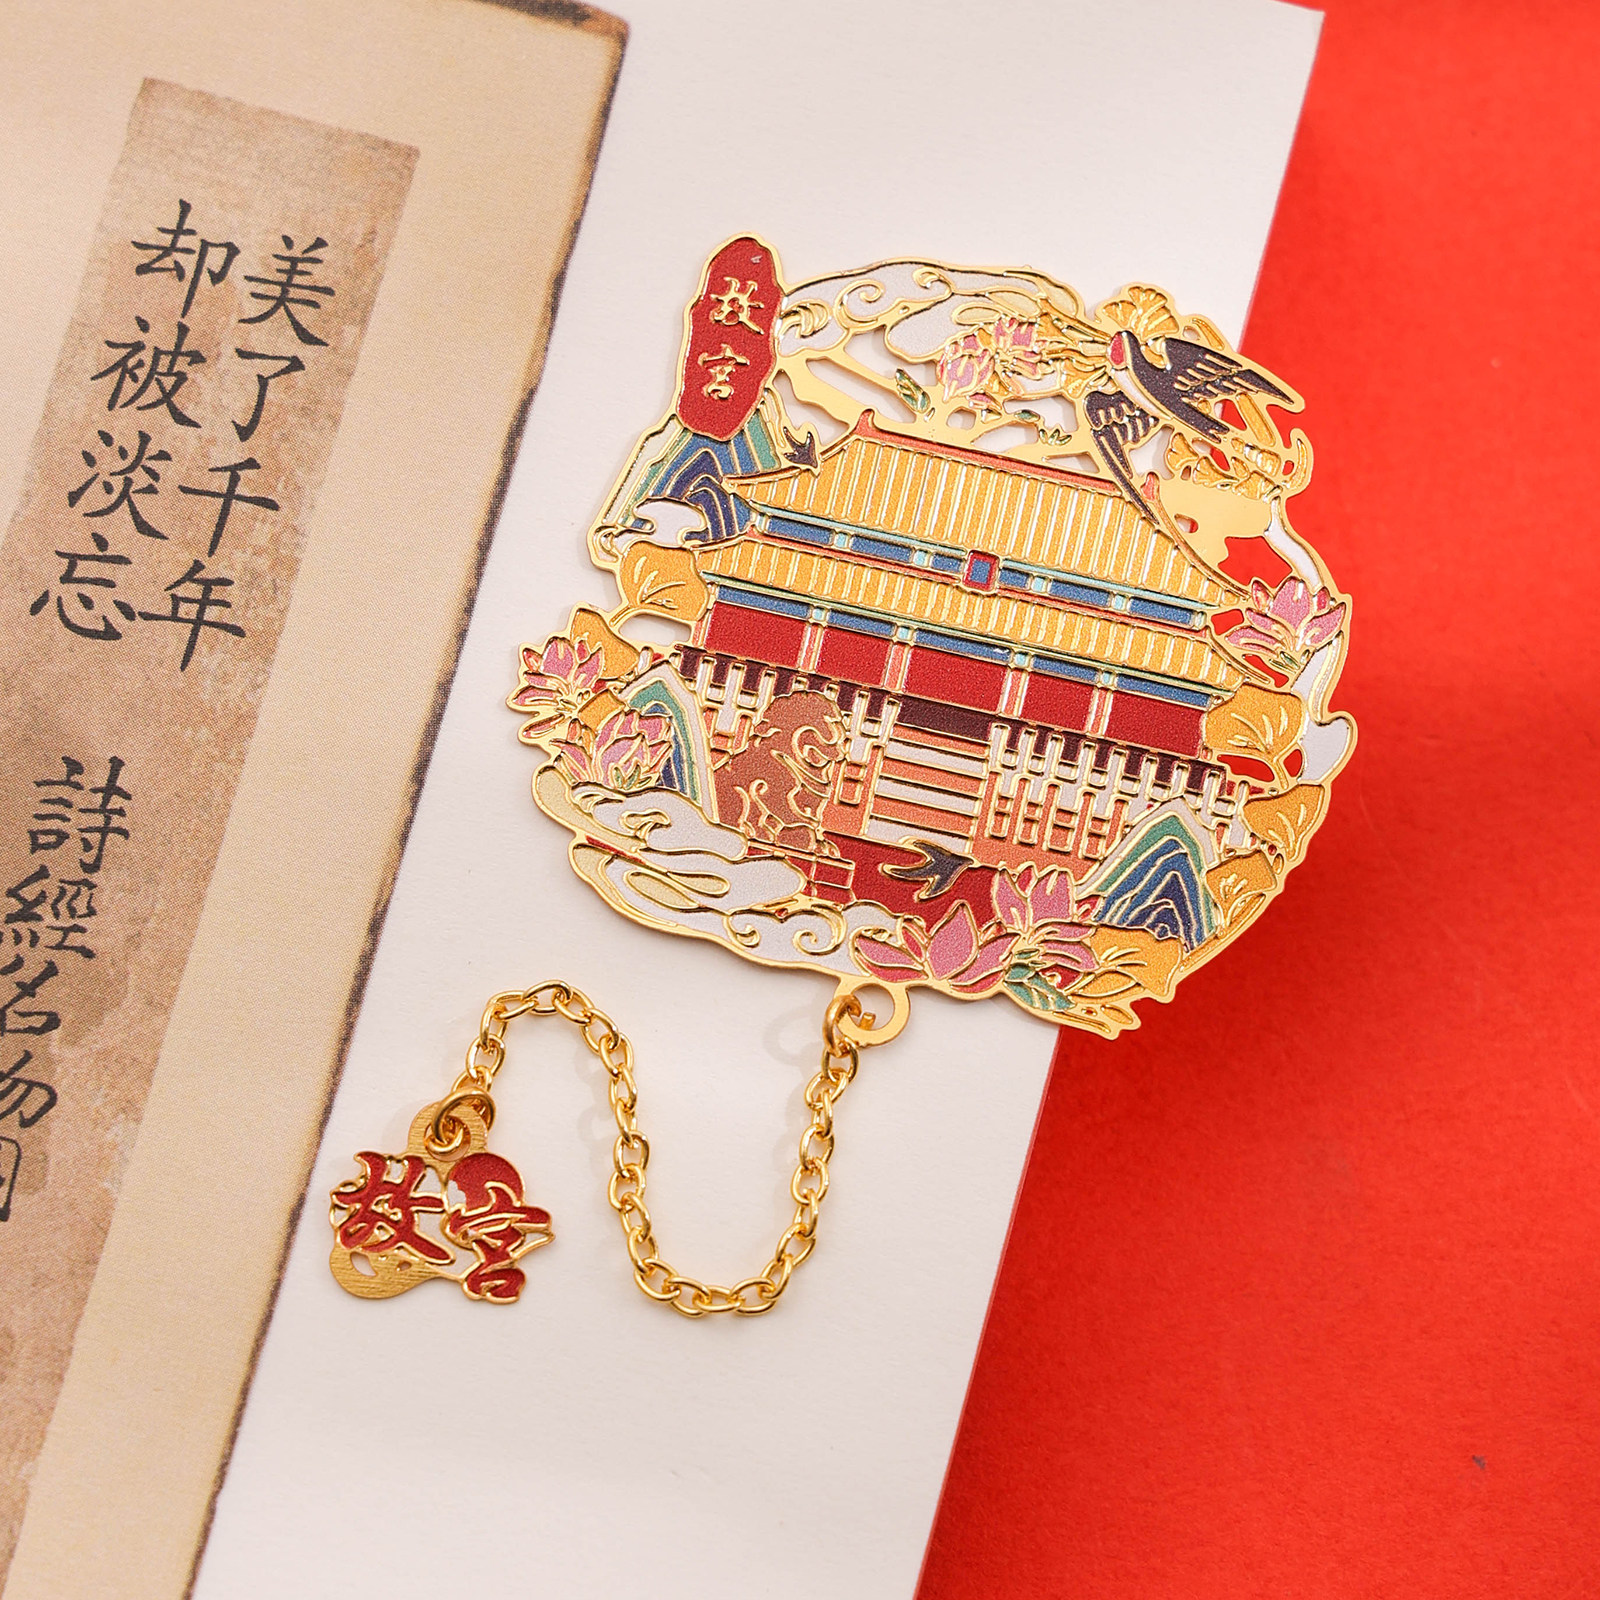 美了千年
却被淡忘
詩經名物
故宮
故宮